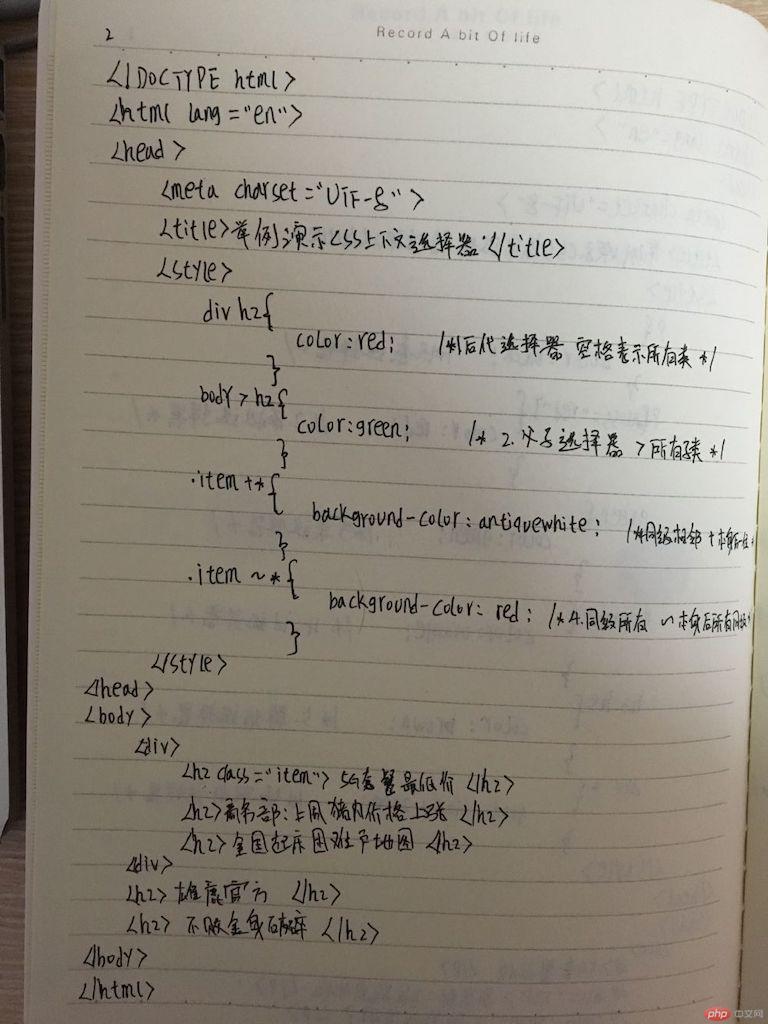 2
Record A bit Of life
<!DOCTYPE html>
<html lang="en">
<head>
<meta charset="UTF-8">
<title>举例演示CSS上下文选择器</title>
<style>
div h2{
color:red; /*1后代选择器 空格表示所有类*/
}
body>h2{
color:green; /* 2.父子选择器 >所有子类*/
}
.item+*{
background-color:antiquewhite; /*同级相邻+本身
}
.item ~*{
background-color: red; /*4.同级所有 ~本身后所有同级
}
</style>
</head>
<body>
<div>
<h2 class="item">5G套餐最低价</h2>
<h2>商务部:上周猪肉价格上涨</h2>
<h2>全国起床困难户地图</h2>
<div>
<h2>雄鹿官方</h2>
<h2>不败金身</h2>
</body>
</html>
php 中文网